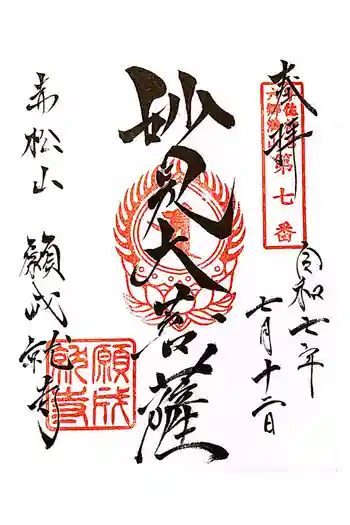 奉拝
六郷満
第七番
令和七年
七月十二日
妙見大菩薩
赤松山 願成就寺
願成就寺